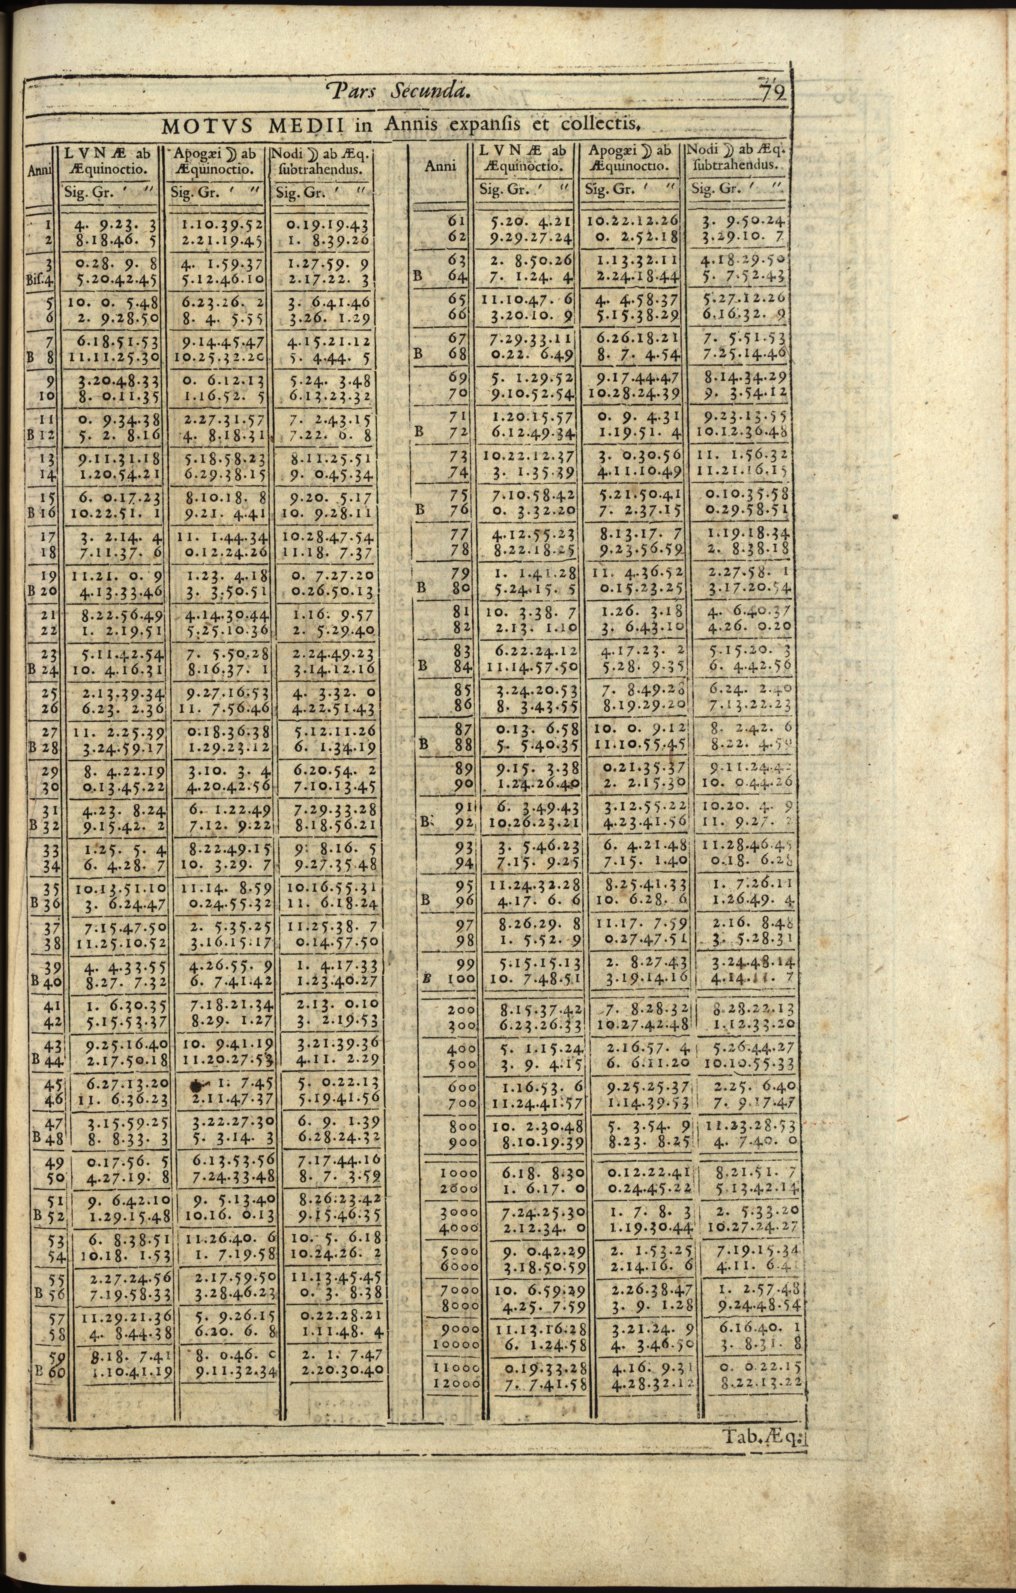 Pars Secunda. 79
MOTVS MEDII in Annis expansis et collectis.
Anni | LVNÆ ab Æquinoctio. | Apogæi ☽ ab Æquinoctio. | Nodi ☽ ab Æq. subtrahendus. | Anni | LVNÆ ab Æquinoctio. | Apogæi ☽ ab Æquinoctio. | Nodi ☽ ab Æq. subtrahendus.
Sig. Gr. ′ ″ | Sig. Gr. ′ ″ | Sig. Gr. ′ ″ | Sig. Gr. ′ ″ | Sig. Gr. ′ ″ | Sig. Gr. ′ ″
1 | 4. 9.23. 3 | 1.10.39.52 | 0.19.19.43 | 61 | 5.20. 4.21 | 10.22.12.26 | 3. 9.50.24
2 | 8.18.46. 5 | 2.21.19.45 | 1. 8.39.26 | 62 | 9.29.27.24 | 0. 2.52.18 | 3.29.10. 7
3 | 0.28. 9. 8 | 4. 1.59.37 | 1.27.59. 9 | 63 | 2. 8.50.26 | 1.13.32.11 | 4.18.29.50
Bis.4 | 5.20.42.45 | 5.12.46.10 | 2.17.22. 3 | B 64 | 7. 1.24. 4 | 2.24.18.44 | 5. 7.52.43
5 | 10. 0. 5.48 | 6.23.26. 2 | 3. 6.41.46 | 65 | 11.10.47. 6 | 4. 4.58.37 | 5.27.12.26
6 | 2. 9.28.50 | 8. 4. 5.55 | 3.26. 1.29 | 66 | 3.20.10. 9 | 5.15.38.29 | 6.16.32. 9
7 | 6.18.51.53 | 9.14.45.47 | 4.15.21.12 | 67 | 7.29.33.11 | 6.26.18.21 | 7. 5.51.53
B 8 | 11.11.25.30 | 10.25.32.20 | 5. 4.44. 5 | B 68 | 0.22. 6.49 | 8. 7. 4.54 | 7.25.14.46
9 | 3.20.48.33 | 0. 6.12.13 | 5.24. 3.48 | 69 | 5. 1.29.52 | 9.17.44.47 | 8.14.34.29
10 | 8. 0.11.35 | 1.16.52. 5 | 6.13.23.32 | 70 | 9.10.52.54 | 10.28.24.39 | 9. 3.54.12
11 | 0. 9.34.38 | 2.27.31.57 | 7. 2.43.15 | 71 | 1.20.15.57 | 0. 9. 4.31 | 9.23.13.55
B 12 | 5. 2. 8.16 | 4. 8.18.31 | 7.22. 6. 8 | B 72 | 6.12.49.34 | 1.19.51. 4 | 10.12.36.48
13 | 9.11.31.18 | 5.18.58.23 | 8.11.25.51 | 73 | 10.22.12.37 | 3. 0.30.56 | 11. 1.56.32
14 | 1.20.54.21 | 6.29.38.15 | 9. 0.45.34 | 74 | 3. 1.35.39 | 4.11.10.49 | 11.21.16.15
15 | 6. 0.17.23 | 8.10.18. 8 | 9.20. 5.17 | 75 | 7.10.58.42 | 5.21.50.41 | 0.10.35.58
B 16 | 10.22.51. 1 | 9.21. 4.41 | 10. 9.28.11 | B 76 | 0. 3.32.20 | 7. 2.37.15 | 0.29.58.51
17 | 3. 2.14. 4 | 11. 1.44.34 | 10.28.47.54 | 77 | 4.12.55.23 | 8.13.17. 7 | 1.19.18.34
18 | 7.11.37. 6 | 0.12.24.26 | 11.18. 7.37 | 78 | 8.22.18.25 | 9.23.56.59 | 2. 8.38.18
19 | 11.21. 0. 9 | 1.23. 4.18 | 0. 7.27.20 | 79 | 1. 1.41.28 | 11. 4.36.52 | 2.27.58. 1
B 20 | 4.13.33.46 | 3. 3.50.51 | 0.26.50.13 | B 80 | 5.24.15. 5 | 0.15.23.25 | 3.17.20.54
21 | 8.22.56.49 | 4.14.30.44 | 1.16. 9.57 | 81 | 10. 3.38. 7 | 1.26. 3.18 | 4. 6.40.37
22 | 1. 2.19.51 | 5.25.10.36 | 2. 5.29.40 | 82 | 2.13. 1.10 | 3. 6.43.10 | 4.26. 0.20
23 | 5.11.42.54 | 7. 5.50.28 | 2.24.49.23 | 83 | 6.22.24.12 | 4.17.23. 2 | 5.15.20. 3
B 24 | 10. 4.16.31 | 8.16.37. 1 | 3.14.12.16 | B 84 | 11.14.57.50 | 5.28. 9.35 | 6. 4.42.56
25 | 2.13.39.34 | 9.27.16.53 | 4. 3.32. 0 | 85 | 3.24.20.53 | 7. 8.49.28 | 6.24. 2.40
26 | 6.23. 2.36 | 11. 7.56.46 | 4.22.51.43 | 86 | 8. 3.43.55 | 8.19.29.20 | 7.13.22.23
27 | 11. 2.25.39 | 0.18.36.38 | 5.12.11.26 | 87 | 0.13. 6.58 | 10. 0. 9.12 | 8. 2.42. 6
B 28 | 3.24.59.17 | 1.29.23.12 | 6. 1.34.19 | B 88 | 5. 5.40.35 | 11.10.55.45 | 8.22. 4.59
29 | 8. 4.22.19 | 3.10. 3. 4 | 6.20.54. 2 | 89 | 9.15. 3.38 | 0.21.35.37 | 9.11.24.42
30 | 0.13.45.22 | 4.20.42.56 | 7.10.13.45 | 90 | 1.24.26.40 | 2. 2.15.30 | 10. 0.44.26
31 | 4.23. 8.24 | 6. 1.22.49 | 7.29.33.28 | 91 | 6. 3.49.43 | 3.12.55.22 | 10.20. 4. 9
B 32 | 9.15.42. 2 | 7.12. 9.22 | 8.18.56.21 | B 92 | 10.26.23.21 | 4.23.41.56 | 11. 9.27.
33 | 1.25. 5. 4 | 8.22.49.15 | 9. 8.16. 5 | 93 | 3. 5.46.23 | 6. 4.21.48 | 11.28.46.45
34 | 6. 4.28. 7 | 10. 3.29. 7 | 9.27.35.48 | 94 | 7.15. 9.25 | 7.15. 1.40 | 0.18. 6.28
35 | 10.13.51.10 | 11.14. 8.59 | 10.16.55.31 | 95 | 11.24.32.28 | 8.25.41.33 | 1. 7.26.11
B 36 | 3. 6.24.47 | 0.24.55.32 | 11. 6.18.24 | B 96 | 4.17. 6. 6 | 10. 6.28. 6 | 1.26.49. 4
37 | 7.15.47.50 | 2. 5.35.25 | 11.25.38. 7 | 97 | 8.26.29. 8 | 11.17. 7.59 | 2.16. 8.48
38 | 11.25.10.52 | 3.16.15.17 | 0.14.57.50 | 98 | 1. 5.52. 9 | 0.27.47.51 | 3. 5.28.31
39 | 4. 4.33.55 | 4.26.55. 9 | 1. 4.17.33 | 99 | 5.15.15.13 | 2. 8.27.43 | 3.24.48.14
B 40 | 8.27. 7.32 | 6. 7.41.42 | 1.23.40.27 | B 100 | 10. 7.48.51 | 3.19.14.16 | 4.14.11. 7
41 | 1. 6.30.35 | 7.18.21.34 | 2.13. 0.10 | 200 | 8.15.37.42 | 7. 8.28.32 | 8.28.22.13
42 | 5.15.53.37 | 8.29. 1.27 | 3. 2.19.53 | 300 | 6.23.26.33 | 10.27.42.48 | 1.12.33.20
43 | 9.25.16.40 | 10. 9.41.19 | 3.21.39.36 | 400 | 5. 1.15.24 | 2.16.57. 4 | 5.26.44.27
B 44 | 2.17.50.18 | 11.20.27.53 | 4.11. 2.29 | 500 | 3. 9. 4.15 | 6. 6.11.20 | 10.10.55.33
45 | 6.27.13.20 | 1. 7.45 | 5. 0.22.13 | 600 | 1.16.53. 6 | 9.25.25.37 | 2.25. 6.40
46 | 11. 6.36.23 | 2.11.47.37 | 5.19.41.56 | 700 | 11.24.41.57 | 1.14.39.53 | 7. 9.17.47
47 | 3.15.59.25 | 3.22.27.30 | 6. 9. 1.39 | 800 | 10. 2.30.48 | 5. 3.54. 9 | 11.23.28.53
B 48 | 8. 8.33. 3 | 5. 3.14. 3 | 6.28.24.32 | 900 | 8.10.19.39 | 8.23. 8.25 | 4. 7.40. 0
49 | 0.17.56. 5 | 6.13.53.56 | 7.17.44.16 | 1000 | 6.18. 8.30 | 0.12.22.41 | 8.21.51. 7
50 | 4.27.19. 8 | 7.24.33.48 | 8. 7. 3.59 | 2000 | 1. 6.17. 0 | 0.24.45.22 | 5.13.42.14
51 | 9. 6.42.10 | 9. 5.13.40 | 8.26.23.42 | 3000 | 7.24.25.30 | 1. 7. 8. 3 | 2. 5.33.20
B 52 | 1.29.15.48 | 10.16. 0.13 | 9.15.46.35 | 4000 | 2.12.34. 0 | 1.19.30.44 | 10.27.24.27
53 | 6. 8.38.51 | 11.26.40. 6 | 10. 5. 6.18 | 5000 | 9. 0.42.29 | 2. 1.53.25 | 7.19.15.34
54 | 10.18. 1.53 | 1. 7.19.58 | 10.24.26. 2 | 6000 | 3.18.50.59 | 2.14.16. 6 | 4.11. 6.4
55 | 2.27.24.56 | 2.17.59.50 | 11.13.45.45 | 7000 | 10. 6.59.29 | 2.26.38.47 | 1. 2.57.48
B 56 | 7.19.58.33 | 3.28.46.23 | 0. 3. 8.38 | 8000 | 4.25. 7.59 | 3. 9. 1.28 | 9.24.48.54
57 | 11.29.21.36 | 5. 9.26.15 | 0.22.28.21 | 9000 | 11.13.16.28 | 3.21.24. 9 | 6.16.40. 1
58 | 4. 8.44.38 | 6.20. 6. 8 | 1.11.48. 4 | 10000 | 6. 1.24.58 | 4. 3.46.50 | 3. 8.31. 8
59 | 8.18. 7.41 | 8. 0.46. 0 | 2. 1. 7.47 | 11000 | 0.19.33.28 | 4.16. 9.31 | 0. 0.22.15
B 60 | 1.10.41.19 | 9.11.32.34 | 2.20.30.40 | 12000 | 7. 7.41.58 | 4.28.32.12 | 8.22.13.22
Tab. Æq: